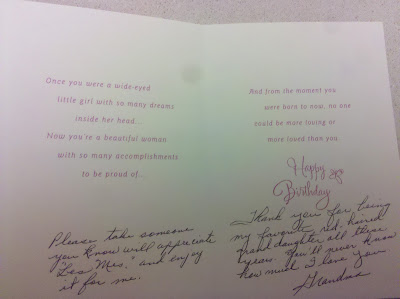 Once you were a wide-eyed
little girl with so many dreams
inside her head...
Now you're a beautiful woman
with so many accomplishments
to be proud of...
Please take someone
you know will appreciate
"Les Mis," and enjoy
it for me.
And from the moment you
were born to now, no one
could be more loving or
more loved than you.
Happy
Birthday
Thank you for being
my favorite red-haired
grand daughter all these
years. You'll never know
how much I love you
Grandma